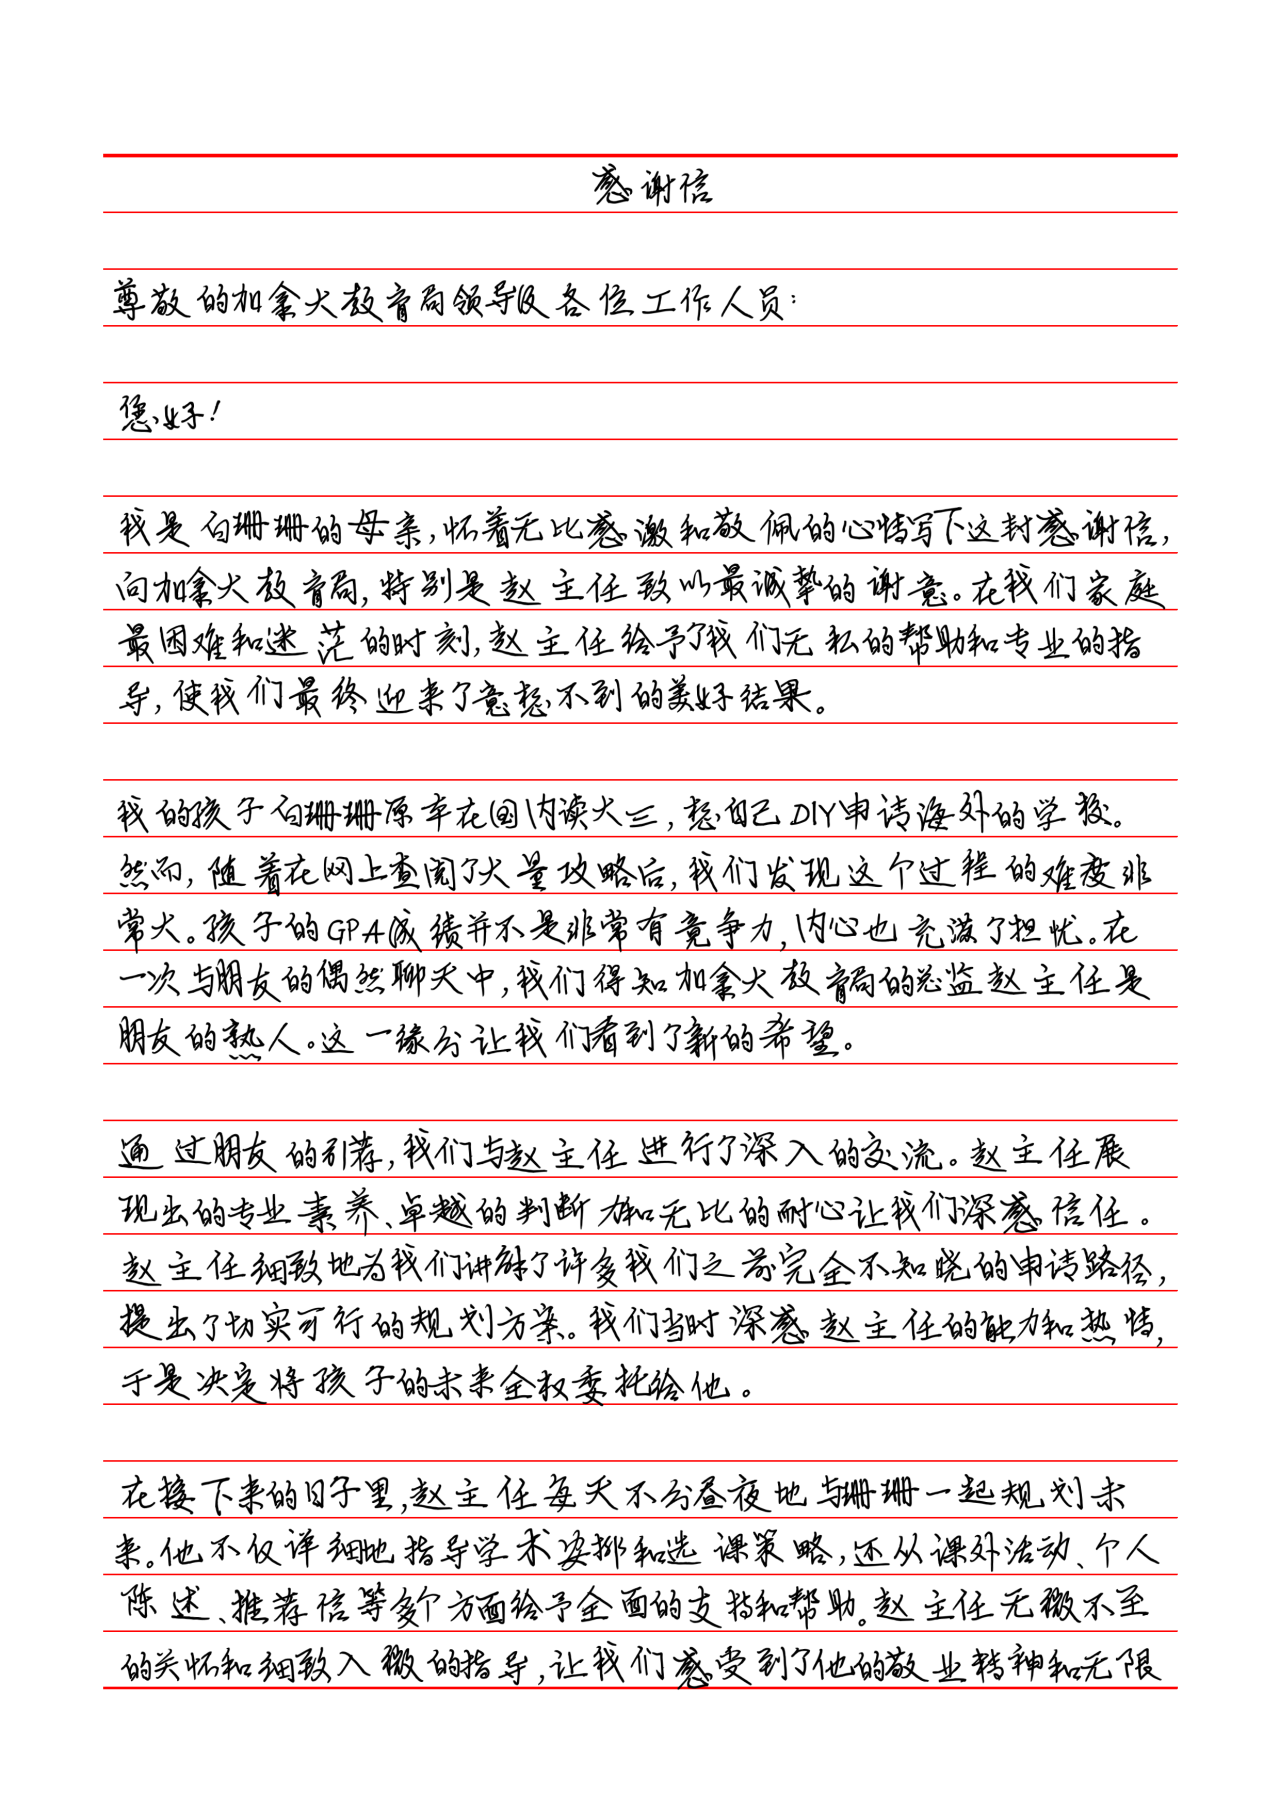 感谢信
尊敬的加拿大教育局领导及各位工作人员：
您好！
我是白珊珊的母亲，怀着无比感激和敬佩的心情写下这封感谢信，
向加拿大教育局，特别是赵主任致以最诚挚的谢意。在我们家庭
最困难和迷茫的时刻，赵主任给予了我们无私的帮助和专业的指
导，使我们最终迎来了意想不到的美好结果。
我的孩子白珊珊原本在国内读大三，想自己DIY申请海外的学校。
然而，随着在网上查阅了大量攻略后，我们发现这个过程的难度非
常大。孩子的GPA成绩并不是非常有竞争力，内心也充满了担忧。在
一次与朋友的偶然聊天中，我们得知加拿大教育局的总监赵主任是
朋友的熟人。这一缘分让我们看到了新的希望。
通过朋友的引荐，我们与赵主任进行了深入的交流。赵主任展
现出的专业素养、卓越的判断力和无比的耐心让我们深感信任。
赵主任细致地为我们讲解了许多我们之前完全不知晓的申请路径，
提出了切实可行的规划方案。我们当时深感赵主任的能力和热情，
于是决定将孩子的未来全权委托给他。
在接下来的日子里，赵主任每天不分昼夜地与珊珊一起规划未
来。他不仅详细地指导学术安排和选课策略，还从课外活动、个人
陈述、推荐信等多个方面给予全面的支持和帮助。赵主任无微不至
的关怀和细致入微的指导，让我们感受到了他的敬业精神和无限